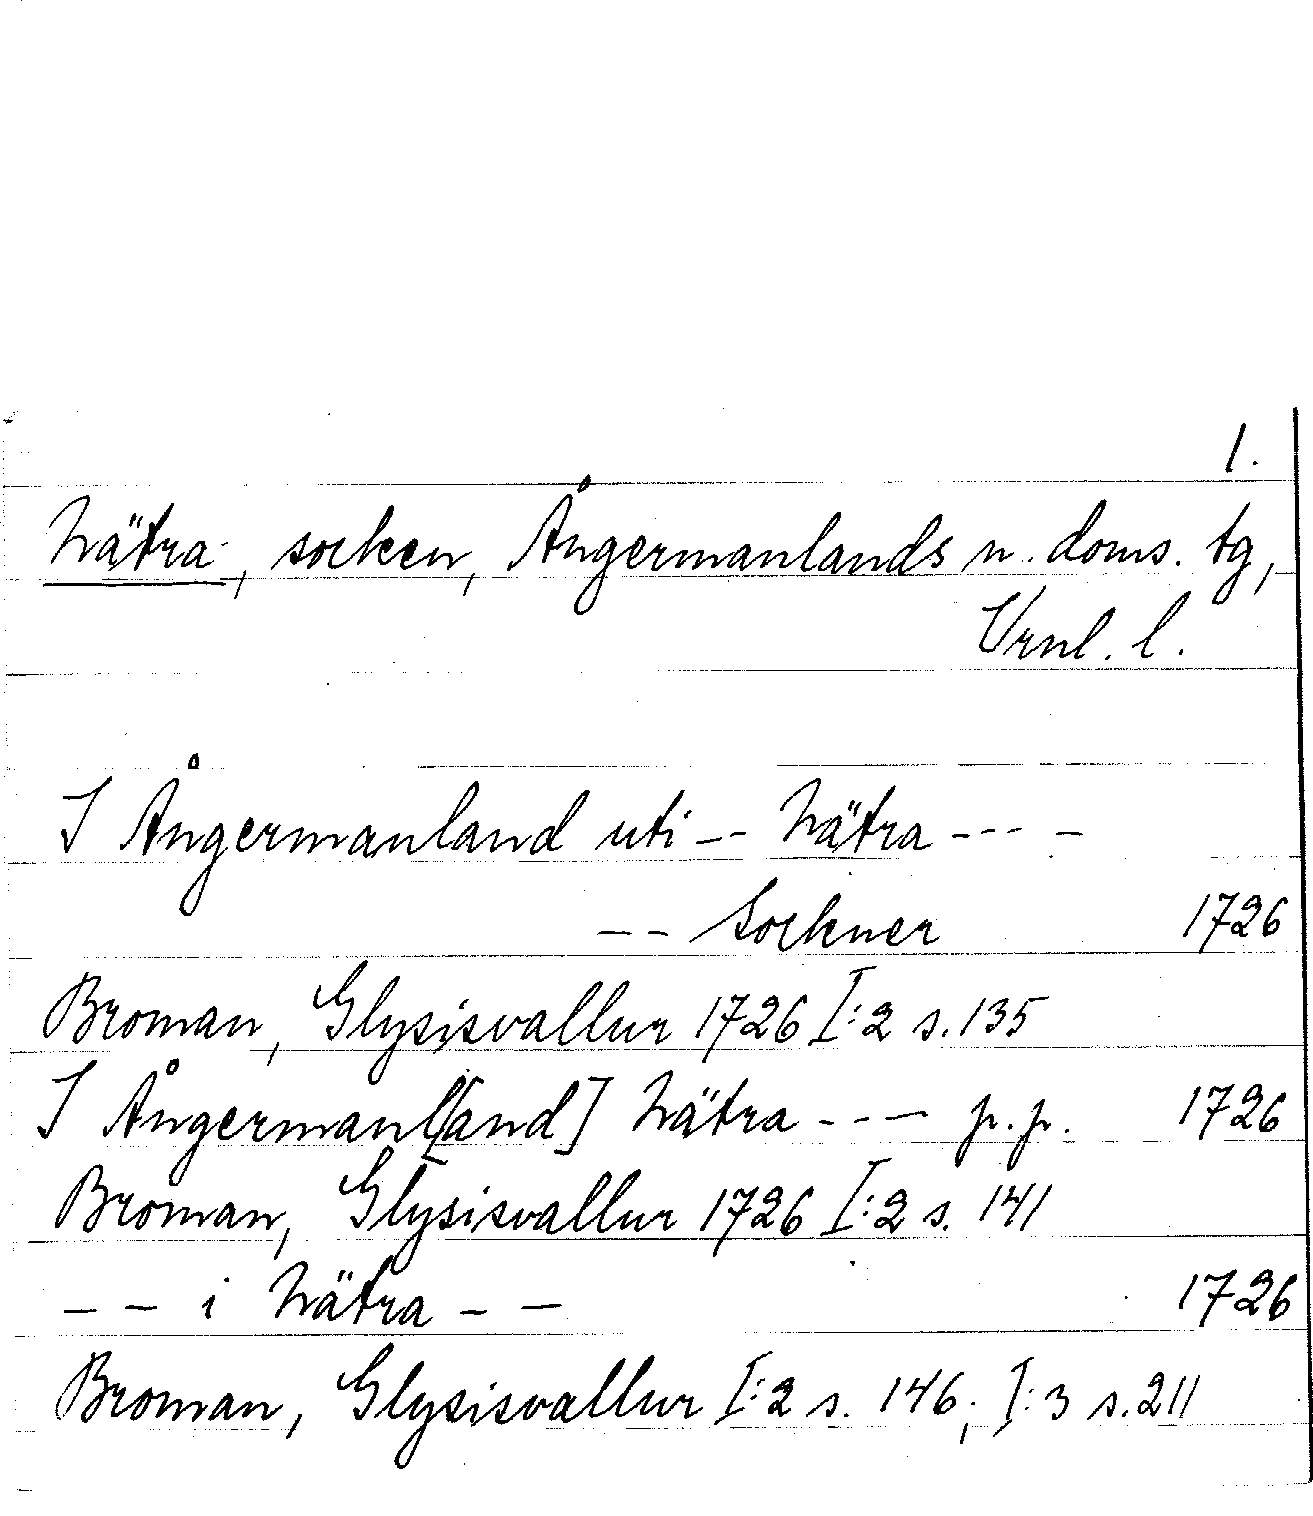 1.
Nätra, socken, Ångermanlands n. doms. tg,
Vrnl. l.
I Ångermanland uti -- Nätra --- -
-- Sockner 1726
Broman, Glysisvallur 1726 I:2 s. 135
I Ångermanl[and] Nätra --- p.p. 1726
Broman, Glysisvallur 1726 I:2 s. 141
-- i Nätra -- 1726
Broman, Glysisvallur I:2 s. 146; I:3 s. 211